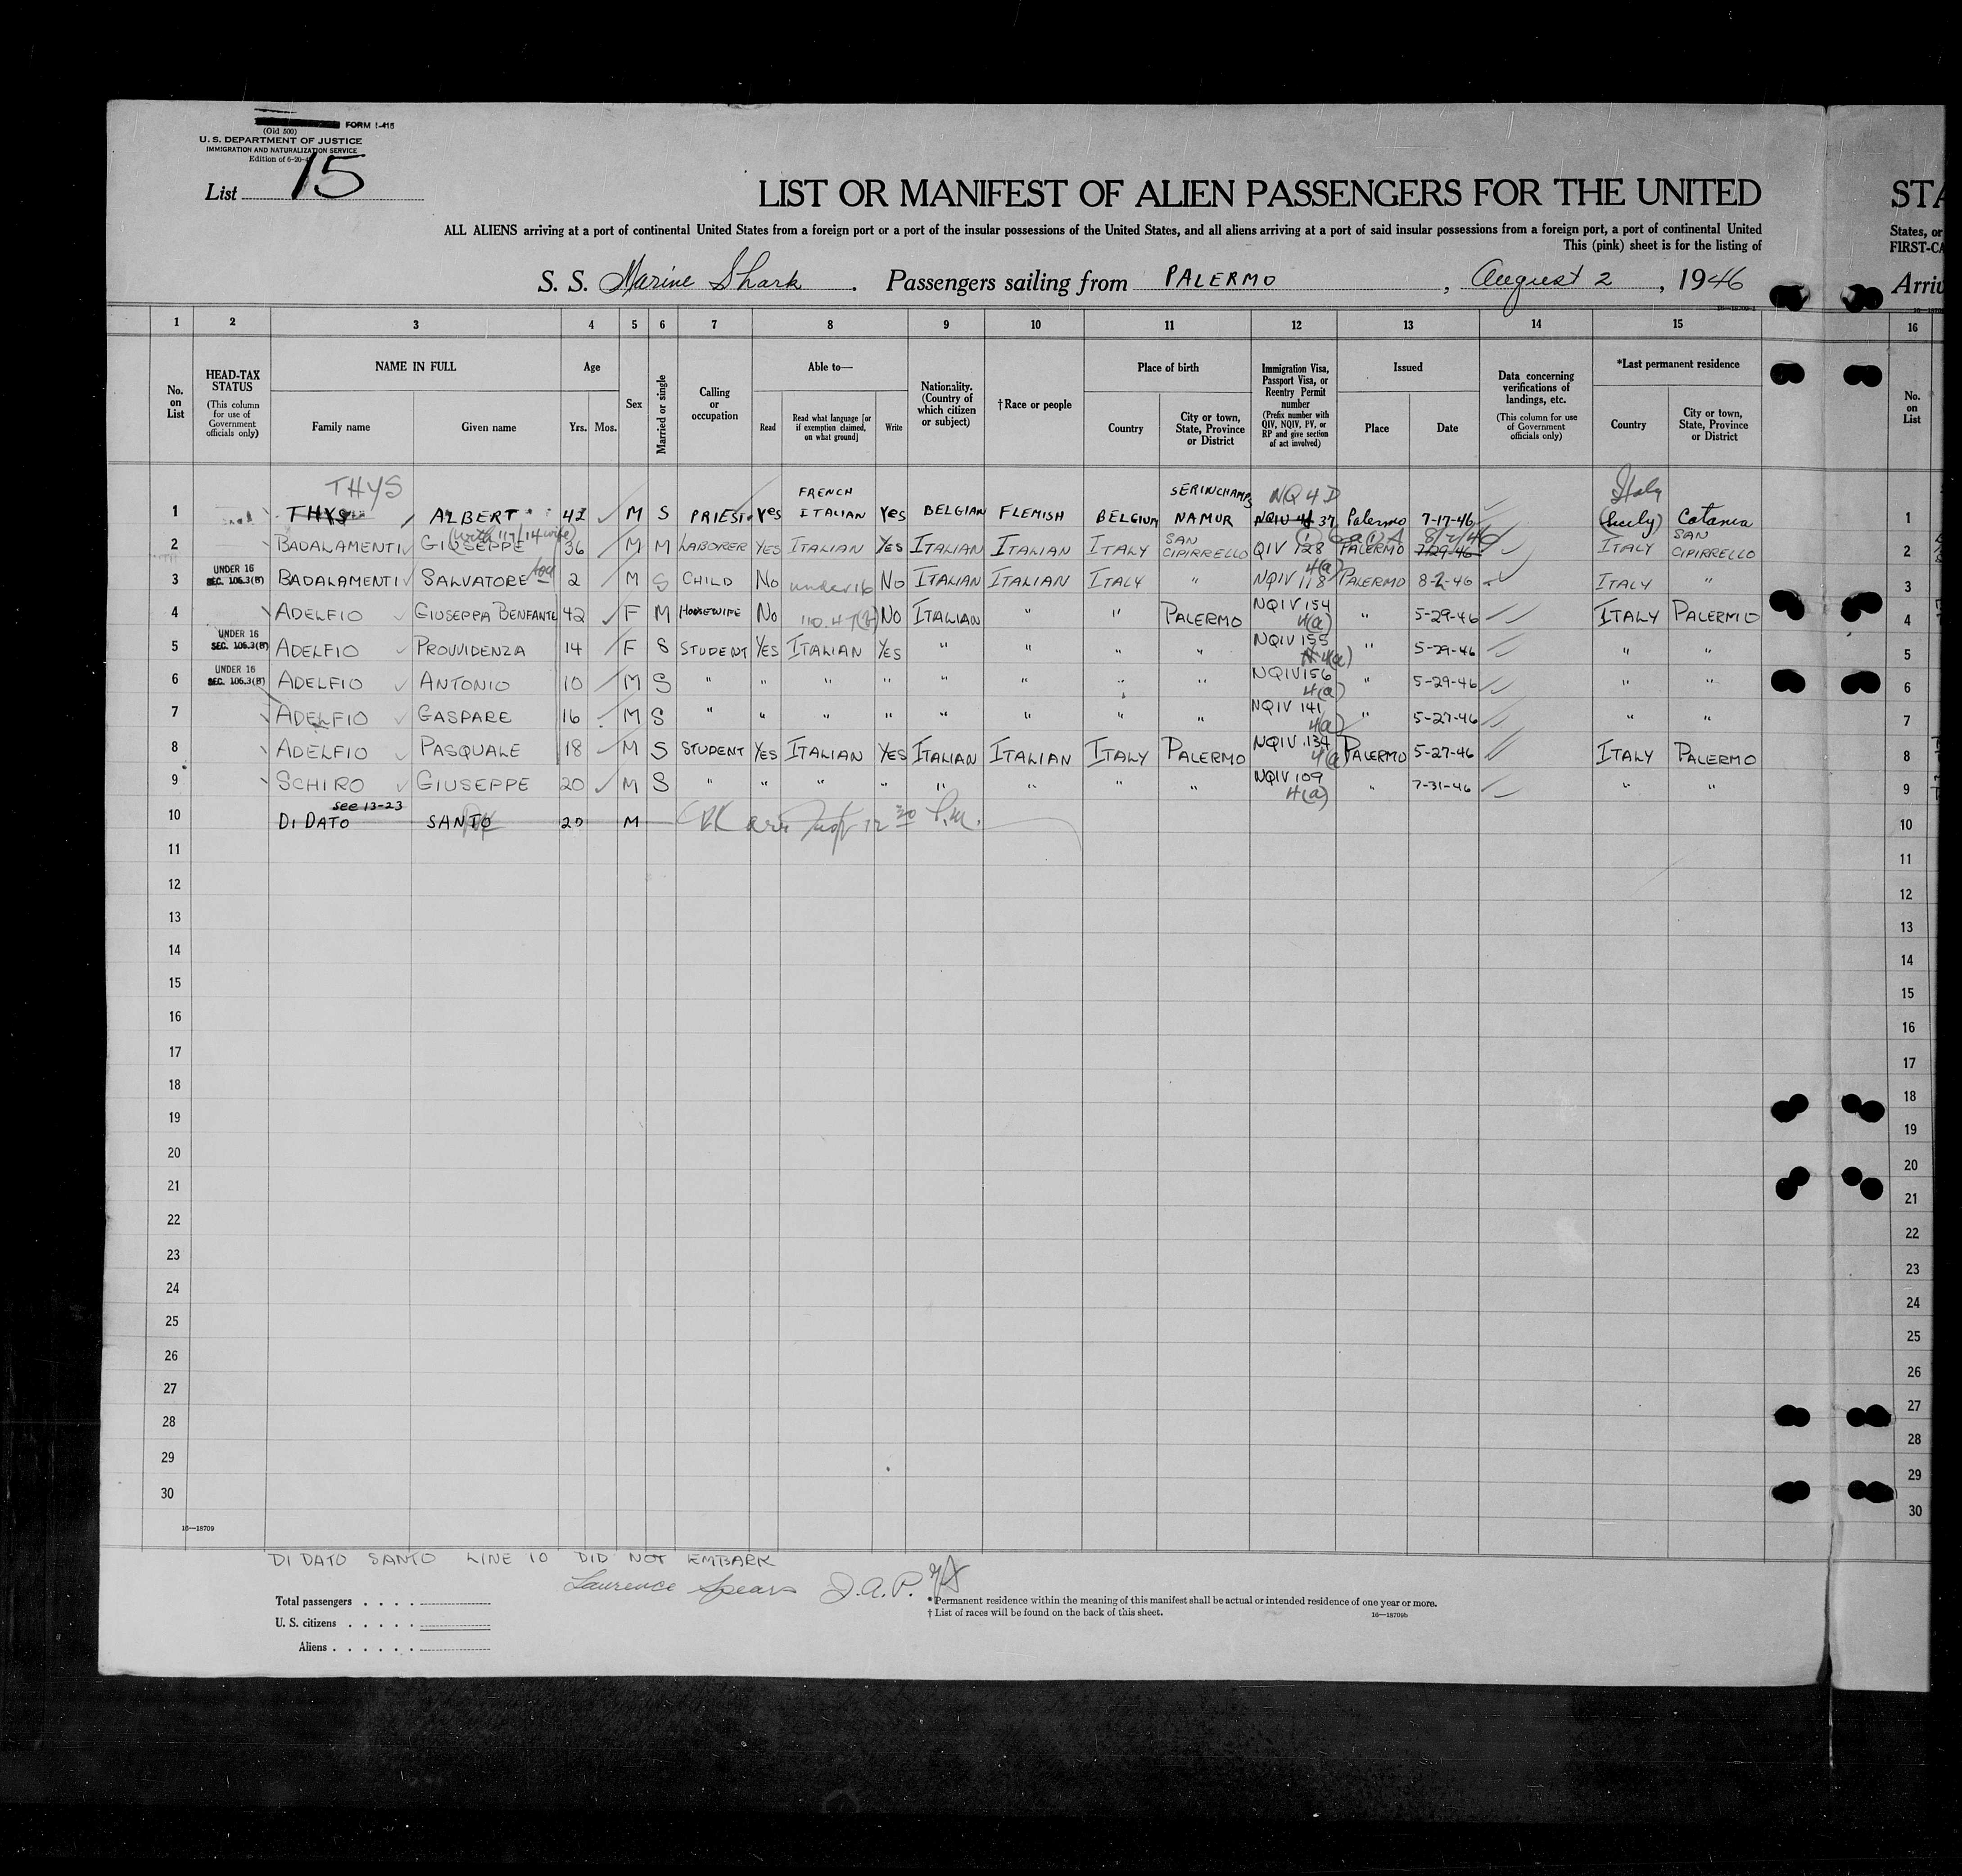 FORM I-415
(Old 500)
U. S. DEPARTMENT OF JUSTICE
IMMIGRATION AND NATURALIZATION SERVICE
Edition of 6-20-
List 15
LIST OR MANIFEST OF ALIEN PASSENGERS FOR THE UNITED
STA
ALL ALIENS arriving at a port of continental United States from a foreign port or a port of the insular possessions of the United States, and all aliens arriving at a port of said insular possessions from a foreign port, a port of continental United
States, or
This (pink) sheet is for the listing of
FIRST-CA
S. S. Marine Shark . Passengers sailing from PALERMO , August 2 , 1946
Arriv
1 2 3 4 5 6 7 8 9 10 11 12 13 14 15 16
No. on List
HEAD-TAX STATUS
(This column for use of Government officials only)
NAME IN FULL
Family name Given name
Age
Yrs. Mos.
Sex
Married or single
Calling or occupation
Able to—
Read
Read what language [or if exemption claimed, on what ground]
Write
Nationality. (Country of which citizen or subject)
†Race or people
Place of birth
Country
City or town, State, Province or District
Immigration Visa, Passport Visa, or Reentry Permit number
(Prefix number with QIV, NQIV, PV, or RP and give section of act involved)
Issued
Place Date
Data concerning verifications of landings, etc.
(This column for use of Government officials only)
*Last permanent residence
Country
City or town, State, Province or District
No. on List
THYS FRENCH SERINCHAMPS NQ 4D Italy
1 THYS ALBERT 42 M S PRIEST Yes ITALIAN Yes BELGIAN FLEMISH BELGIUM NAMUR 37 Palermo 7-17-46 (Sicily) Catania 1
(with 117/14 wife) 8/2/46
2 BADALAMENTI GIUSEPPE 36 M M LABORER YES ITALIAN YES ITALIAN ITALIAN ITALY SAN CIPIRRELLO QIV 128 PALERMO 7-29-46 ITALY SAN CIPIRRELLO 2
UNDER 16 4(a)
3 SEC. 105.3(B) BADALAMENTI SALVATORE 2 M S CHILD No under 16 No ITALIAN ITALIAN ITALY " NQIV 118 PALERMO 8-2-46 ITALY " 3
4 ADELFIO GIUSEPPA BENFANTE 42 F M HOUSEWIFE No No ITALIAN " " PALERMO NQIV 154 4(a) " 5-29-46 ITALY PALERMO 4
UNDER 16
5 SEC. 105.3(B) ADELFIO PROVVIDENZA 14 F S STUDENT YES ITALIAN YES " " " " NQIV 155 4(a) " 5-29-46 " " 5
UNDER 16
6 SEC. 105.3(B) ADELFIO ANTONIO 10 M S " " " " " " " " NQIV 156 4(a) " 5-29-46 " " 6
7 ADELFIO GASPARE 16 M S " " " " " " " " NQIV 141 4(a) " 5-27-46 " " 7
8 ADELFIO PASQUALE 18 M S STUDENT YES ITALIAN YES ITALIAN ITALIAN ITALY PALERMO NQIV 134 4(a) PALERMO 5-27-46 ITALY PALERMO 8
9 SCHIRO GIUSEPPE 20 M S " " " " " " " " NQIV 109 4(a) " 7-31-46 " " 9
see 13-23
10 DI DATO SANTO 20 M 10
11 11
12 12
13 13
14 14
15 15
16 16
17 17
18 18
19 19
20 20
21 21
22 22
23 23
24 24
25 25
26 26
27 27
28 28
29 29
30 30
16—18709
DI DATO SANTO LINE 10 DID NOT EMBARK
Laurence Spears J.A.P.
Total passengers . . . .
U. S. citizens . . . . .
Aliens . . . . . .
* Permanent residence within the meaning of this manifest shall be actual or intended residence of one year or more.
† List of races will be found on the back of this sheet.
16—18709b